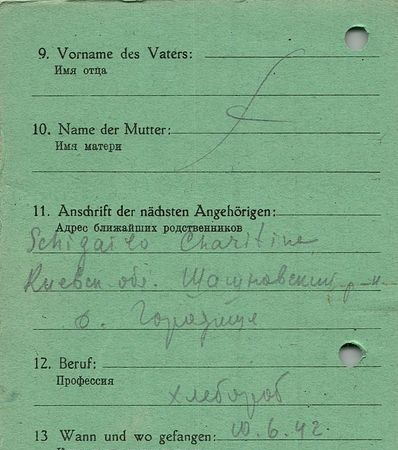 9. Vorname des Vaters:
Имя отца
10. Name der Mutter:
Имя матери
11. Anschrift der nächsten Angehörigen:
Адрес ближайших родственников
Schigailo Charitine
Киевск. обл. р-н
с. Городище
12. Beruf:
Профессия
хлебороб
13 Wann und wo gefangen: 10.6.42